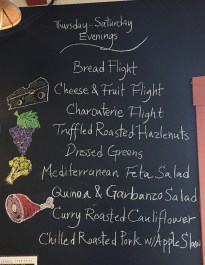 Thursday-Saturday
Evenings
Bread Flight
Cheese & Fruit Flight
Charcuterie Flight
Truffled Roasted Hazlenuts
Dressed Greens
Mediterranean Feta Salad
Quinoa & Garbanzo Salad
Curry Roasted Cauliflower
Chilled Roasted Pork w/Apple Slaw